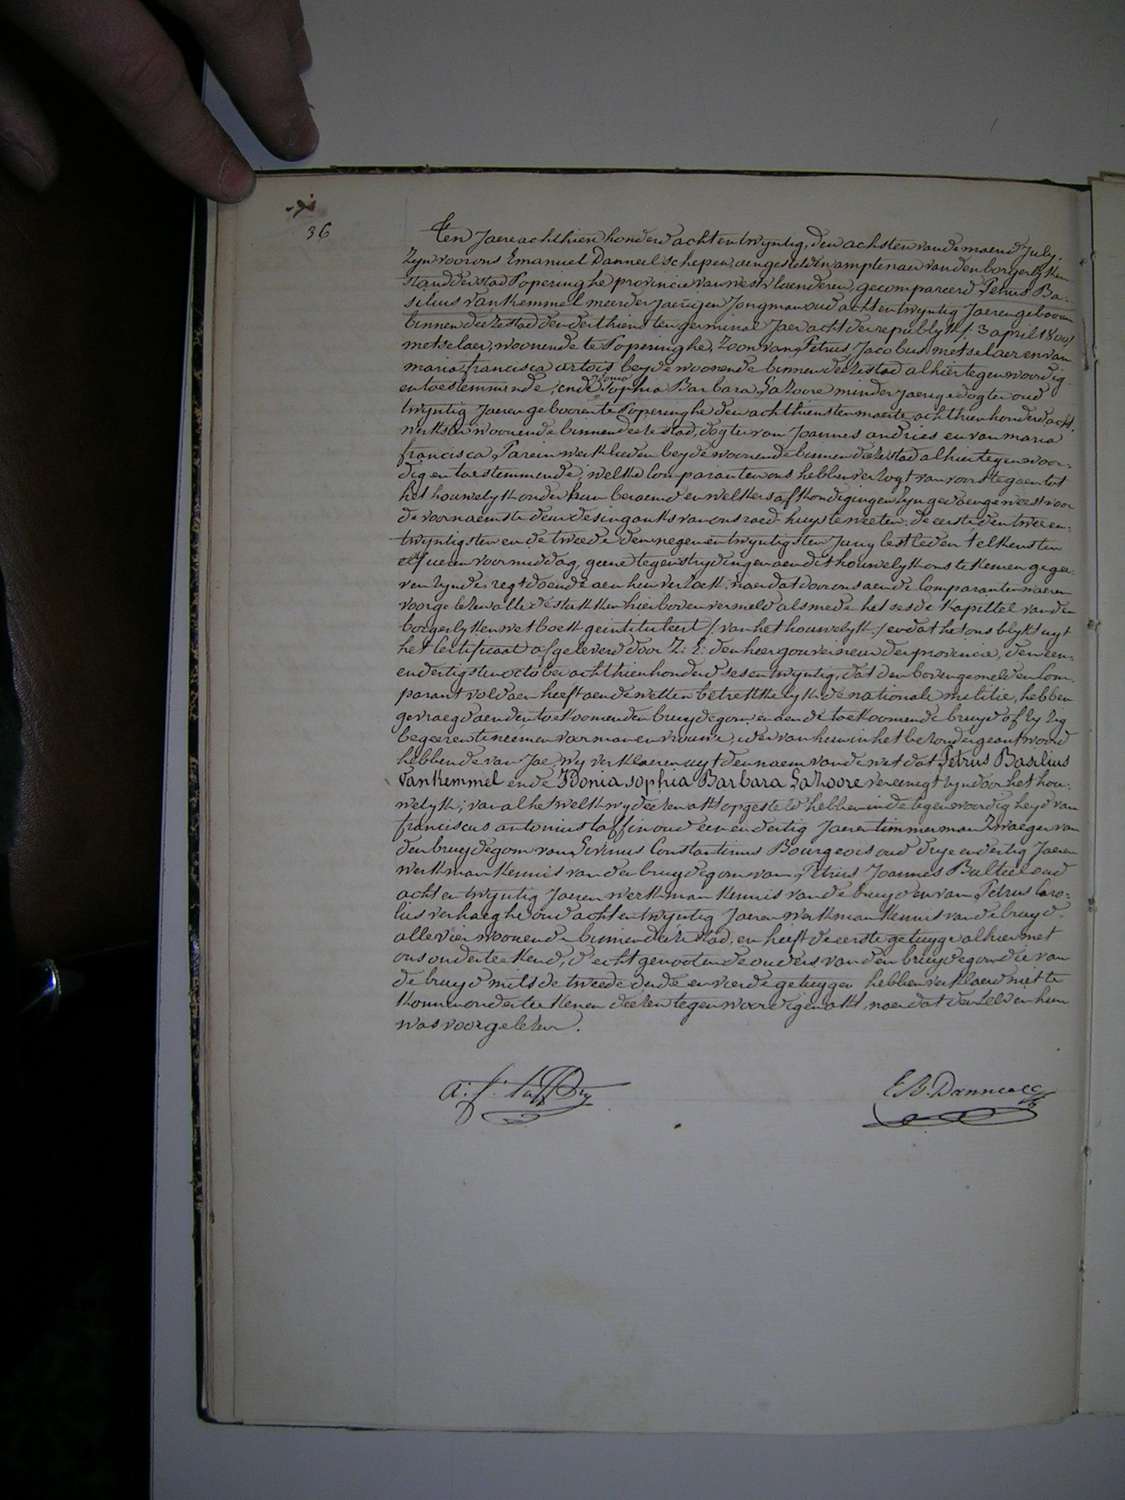 36
Ten Jaere achthien honderd acht en twyntig, den achsten van de maend July.
Zyn voor ons Emanuel Danneel schepen, aengestelden amptenaer van den borgerlyken
stand der stad Poperinghe provincie van westvlaenderen, gecompareerd Petrus Ba-
silius VanKemmel meerderjaerigen Jongman oud acht en twyntig Jaeren gebooren
binnen deeze stad den derthiensten germinal Jaer acht der republyk (3 april 1800)
metselaer, woonende te Poperinghe, Zoon van Petrus Jacobus metselaer en van
maria francisca artois beyde woonende binnen deeze stad alhier tegenwoordig
en toestemmende, ende Idonia Sophia Barbara LaHoore minderjaerige dogter oud
twyntig Jaeren gebooren te Poperinghe den achthiensten maerte achthien honderd acht,
werkster woonende binnen deeze stad, dogter van Joannes andries en van maria
francisca Parein werklieden beyde woonende binnen deeze stad alhier tegenwoor-
dig en toestemmende, welke Comparanten ons hebben verzogt van voorts te gaen tot
het houwelyk onder hun beraemd en welkers afkondigingen zyn gedaen geweest voor
de voornaemste deur des ingangs van ons raed-huys te weeten: de eerste den twee en
twyntigsten en de tweede den negen en twyntigsten Juny lestleden telkens ten
elf uren voormiddag, geene tegenstrydingen aen dit houwelyk ons te kennen gegee-
ven zynde, regt doende aen hun verzoek, naer dat door ons aen de Comparanten waeren
voorgelezen alle de stukken hierboven vermeld alsmede het sesde kapittel van den
borgerlyken wetboek geintituleert (van het houwelyk) en dat het ons blykt uyt
het Certificaet afgeleverd door Z: E: den heer gouverneur der provincie, den een-
en dertigsten october achthien honderd ses en twyntig, dat den bovengemelden Com-
parant voldaen heeft aen de wetten betrekkelyk de nationale militie, hebben
gevraegd aen den toekoomenden bruydegom en aen de toekoomende bruyd of zy zig
begeeren te neemen voor man en vrouwe, ider van hun in het bezonder geantwoord
hebbende van Jae, wy verklaeren uyt den naem van de wet dat Petrus Basilius
VanKemmel ende Idonia sophia Barbara LaHoore vereenigt zyn door het hou-
welyk; van al het welk wy deezen akt opgesteld hebben in de tegenwoordigheyd van
franciscus antonius taffin oud een en dertig Jaeren timmerman Zwaeger van
den bruydegom van Livinus Constantinus Bourgeois oud drye en dertig Jaeren
werkman kennis van den bruydegom van Petrus Joannes Bulteel oud
acht en twyntig Jaeren werkman kennis van de bruyd en van Petrus Caro-
lus verhaeghe oud acht en twyntig Jaeren werkman kennis van de bruyd.
alle vier woonende binnen deeze stad, en heeft de eerste getuyge alhier met
ons onderteekend, d'echtgenooten de ouders van den bruydegom die van
de bruyd mits de tweede derde en vierde getuygen hebben verklaerd niet te
konnen onderteekenen deezen tegenwoordigen akt, naer dat den zelven hun
was voorgelezen.
a: f: taffin
E B. Danneel